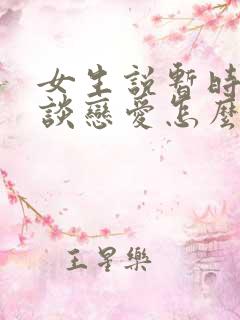 女生說暫時
談戀愛怎麼
王星樂